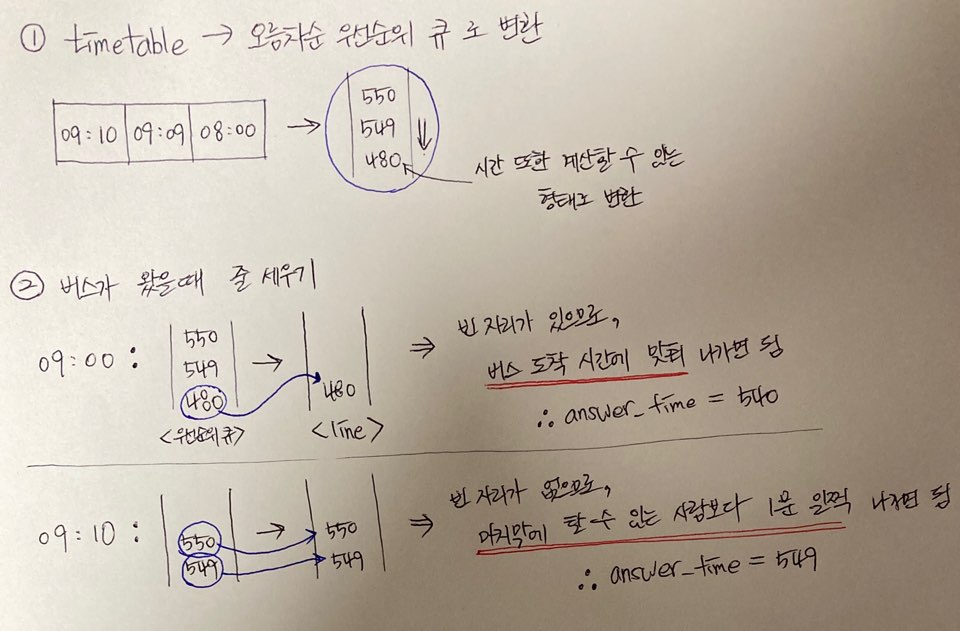 ① timetable → 오름차순 우선순위 큐로 변환
09:10 09:09 08:00 →
550
549
480
시간 또한 계산할 수 있는
형태로 변환
② 버스가 왔을때 줄 세우기
09:00 :
550
549
480
→
480
<우선순위큐>
<line>
⇒ 빈 자리가 있으므로,
버스 도착 시간에 맞춰 나가면 됨
∴ answer_time = 540
09:10 :
550
549
→
550
549
⇒ 빈 자리가 없으므로,
마지막에 탈 수 있는 사람보다 1분 일찍 나가면 됨
∴ answer_time = 549